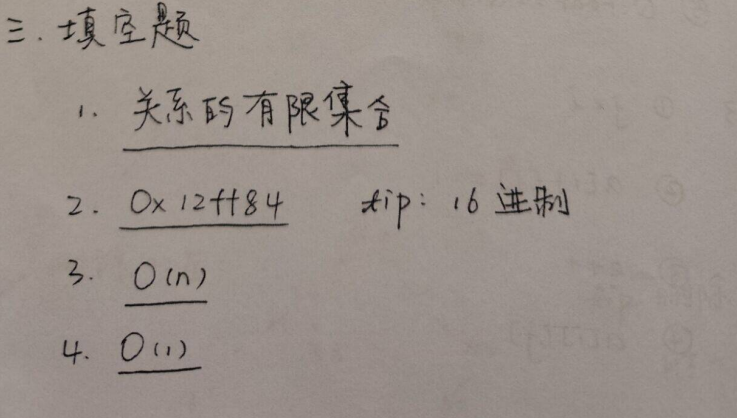 三. 填空题
1. 关系的有限集合
2. 0x12ff84 tip: 16 进制
3. O(n)
4. O(1)